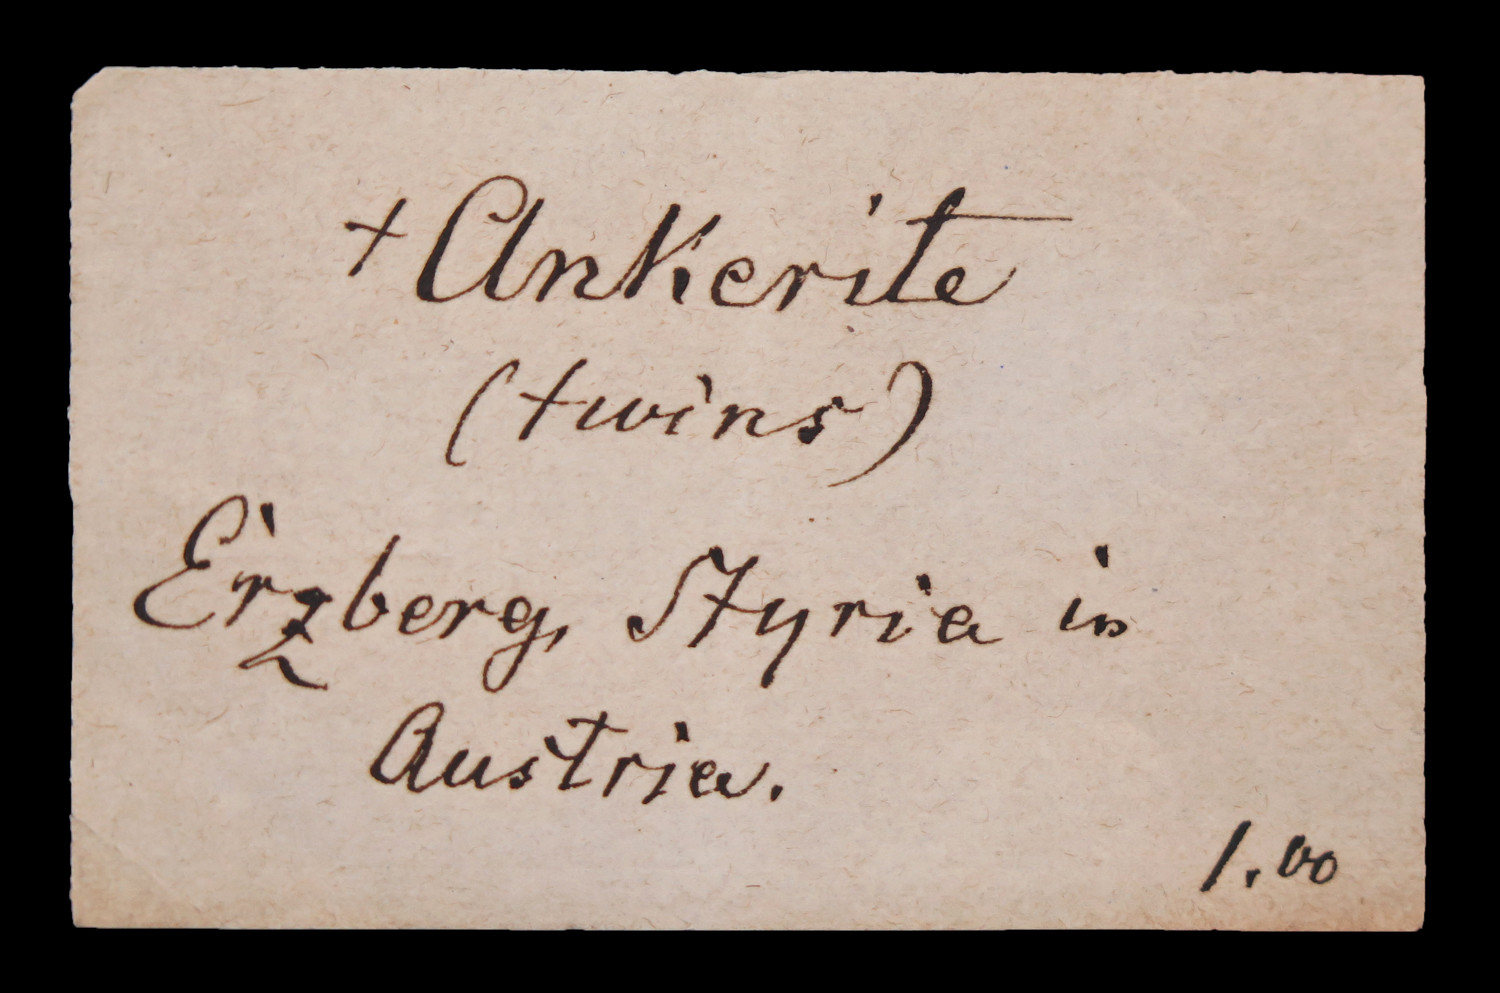 + Ankerite
(twins)
Erzberg, Styria in
Austria.
1.00